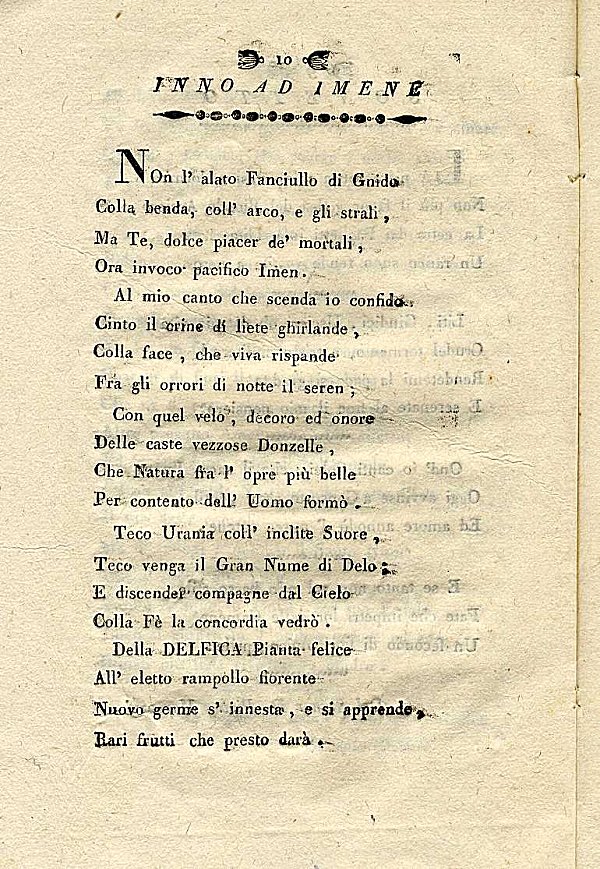 10
INNO AD IMENE
NOn l' alato Fanciullo di Gnido
Colla benda, coll' arco, e gli strali,
Ma Te, dolce piacer de' mortali,
Ora invoco pacifico Imen.
Al mio canto che scenda io confido
Cinto il crine di liete ghirlande,
Colla face, che viva rispande
Fra gli orrori di notte il seren;
Con quel velo, decoro ed onore
Delle caste vezzose Donzelle,
Che Natura fra l' opre più belle
Per contento dell' Uomo formò.
Teco Urania coll' inclite Suore,
Teco venga il Gran Nume di Delo;
E discender compagne dal Cielo
Colla Fè la concordia vedrò.
Della DELFICA Pianta felice
All' eletto rampollo fiorente
Nuovo germe s' innesta, e si apprende,
Rari frutti che presto darà.